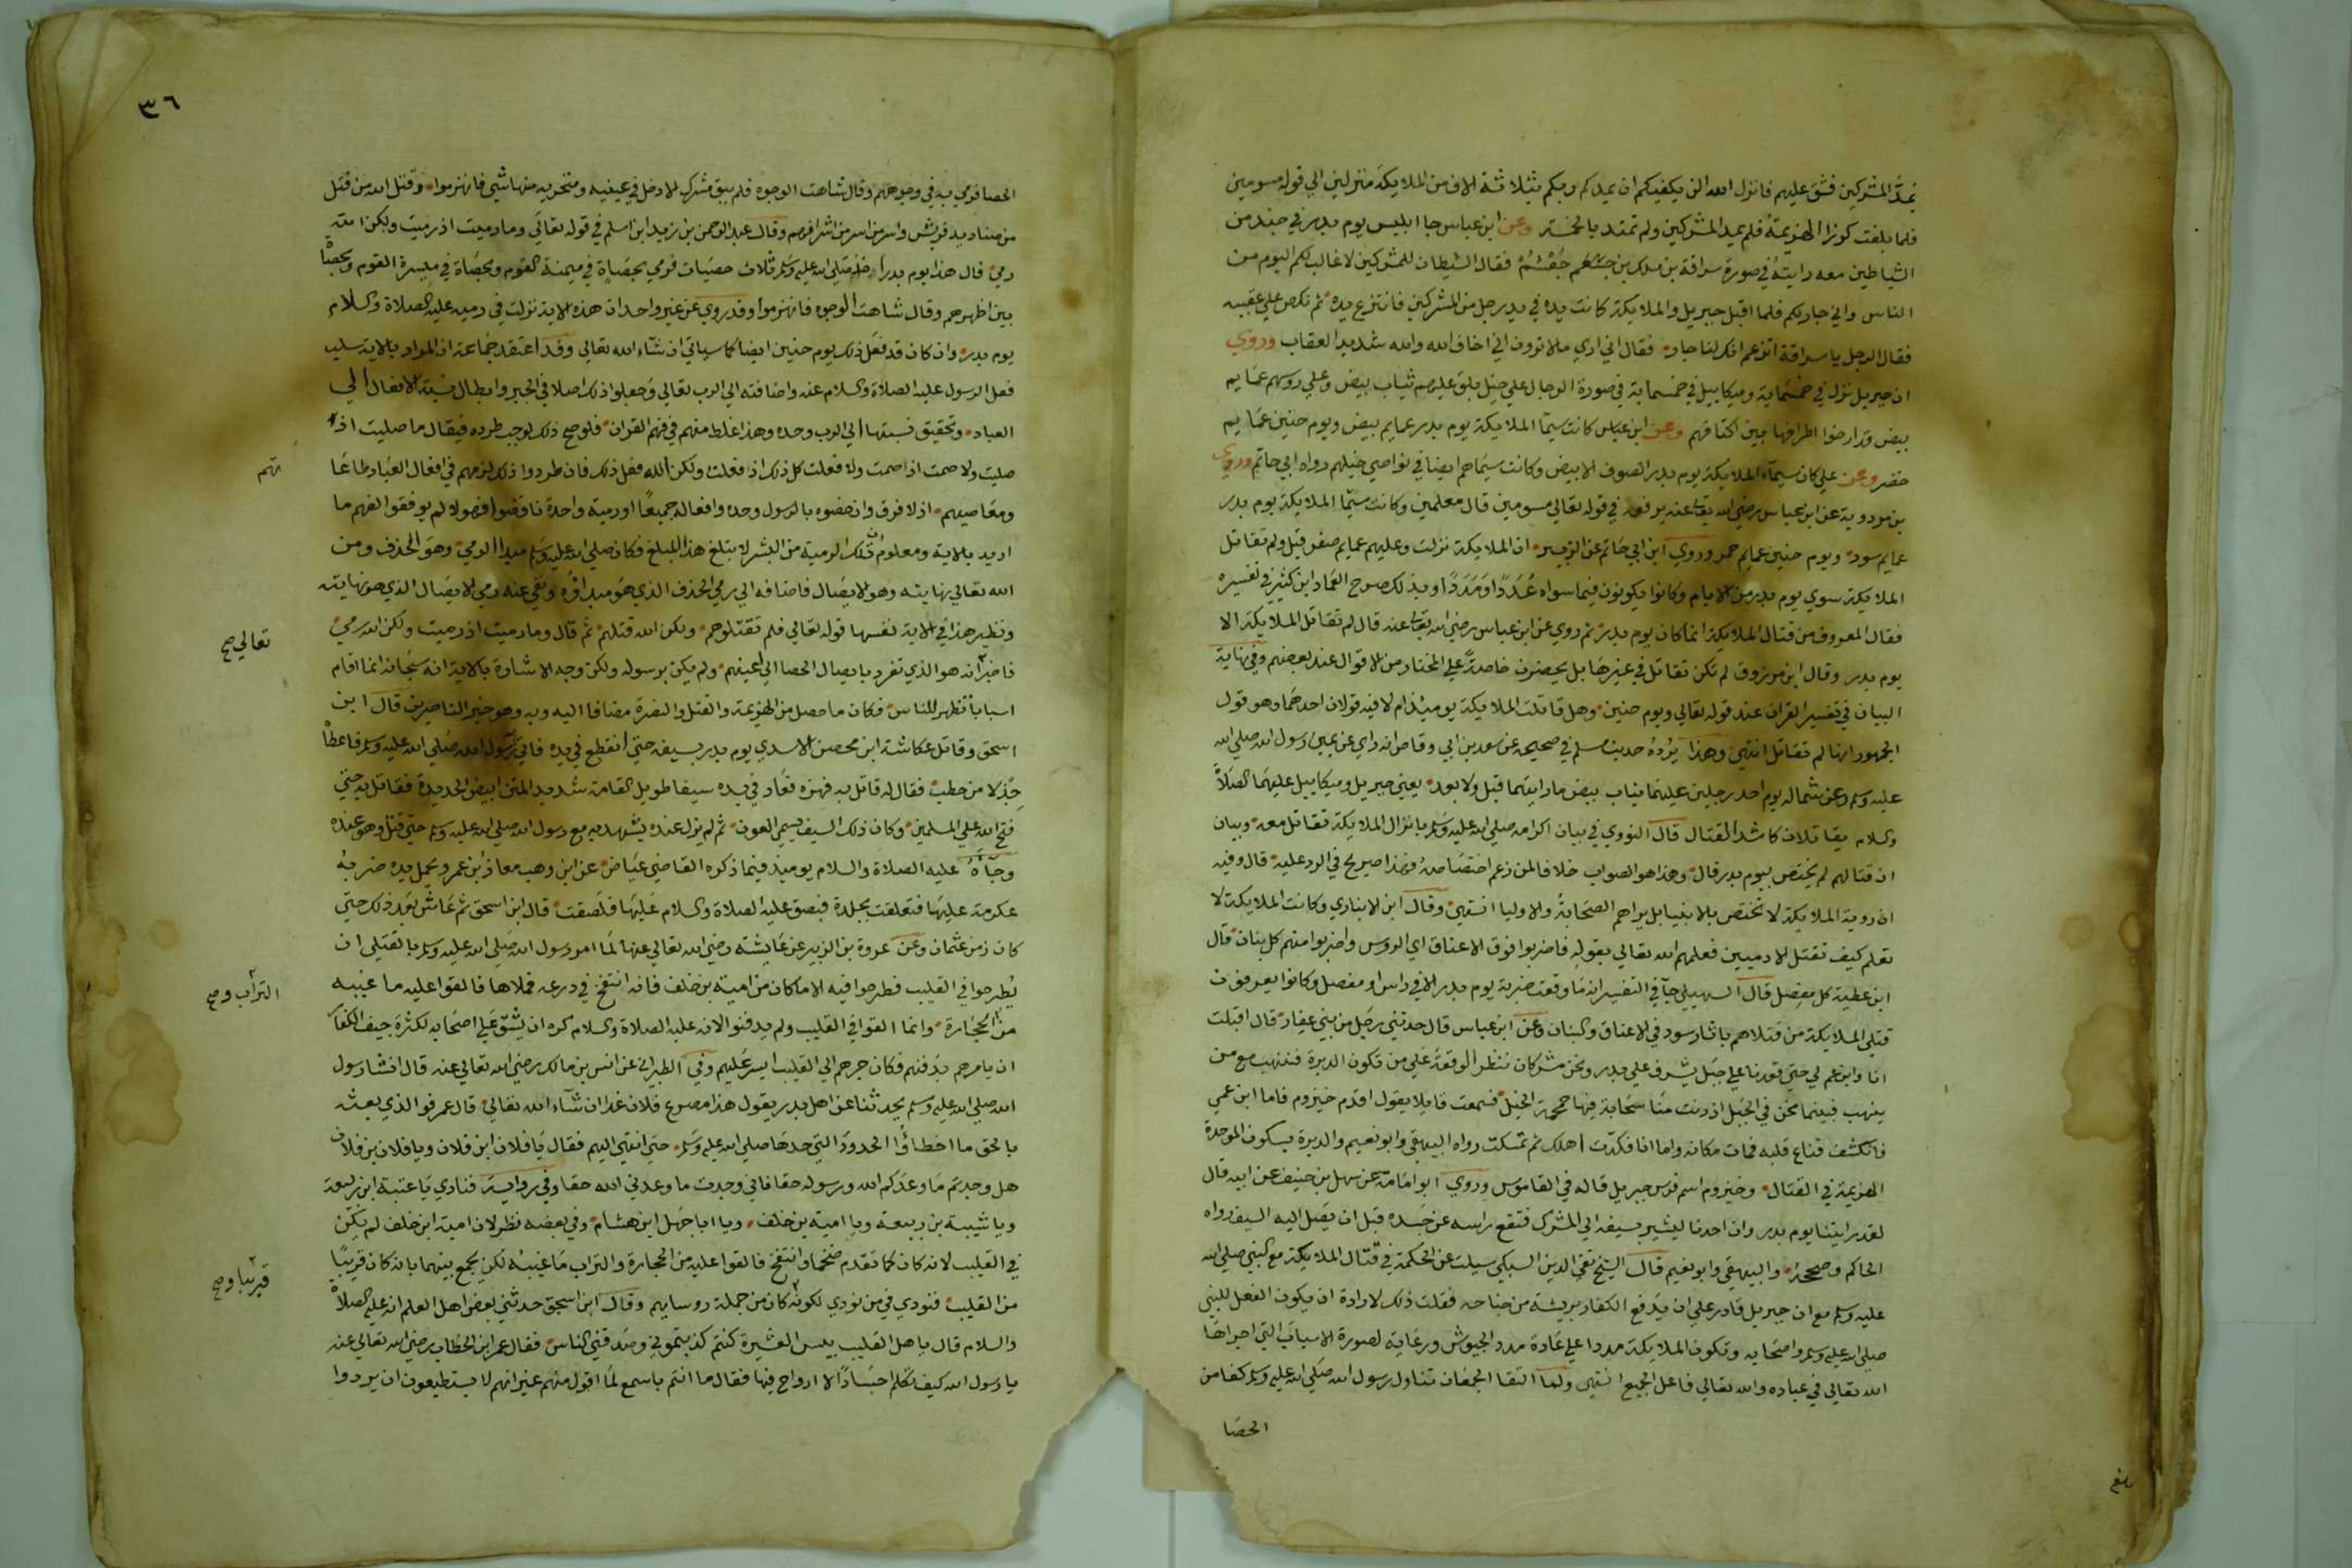 يمد المشركين فشق عليهم فانزل الله الن يكفيكم ان يمدكم ربكم بثلاثة الاف من الملايكة منزلين الي قوله مسومين
فلما بلغت كرزا الهزيمة فلم يمد المشركين ولم تمد بالخمسة وعن ابن عباس جا ابليس يوم بدر في جند من
الشياطين معه رايته في صورة سراقة بن ملك بن جعشم فقال الشيطان للمشركين لا غالب لكم اليوم من
الناس واني جار لكم فلما اقبل جبريل والملايكة كانت يده في يد رجل من المشركين فانتزع يده ثم نكص علي عقبيه
فقال الرجل يا سراقة اتزعم انك لنا جار فقال اني اري ما لا ترون اني اخاف الله والله شديد العقاب وروي
ان جبريل نزل في خمسماية وميكاييل في خمسماية في صورة الرجال علي خيل بلق عليهم ثياب بيض وعلي روسهم عمايم
بيض قد ارخوا اطرافها بين اكتافهم وعن ابن عباس كانت سيمآ الملايكة يوم بدر عمايم بيض ويوم حنين عمايم
خضر وعن علي كان سيمآء الملايكة يوم بدر الصوف الابيض وكانت سيماهم ايضا في نواصي خيلهم رواه ابي حاتم وروي
بن مردوية عن ابن عباس رضي الله تعالي عنه يرفعه في قوله تعالي مسومين قال معلمين وكانت سيما الملايكة يوم بدر
عمايم سود ويوم حنين عمايم حمر وروي ابن ابي حاتم عن الزبير ان الملايكة نزلت وعليهم عمايم صفر قيل ولم تقاتل
الملايكة سوي يوم بدر من الايام وكانوا يكونون فيما سواه عددا ومددا وبذلك صرح العماد ابن كثير في تفسيره
فقال المعروف من قتال الملايكة انما كان يوم بدر ثم روي عن ابن عباس رضي الله تعالي عنه قال لم تقاتل الملايكة الا
يوم بدر وقال ابن مرزوق لم تكن تقاتل في غيرها بل يحضرون خاصة علي المختار من الاقوال عند بعضهم وفي نهاية
البيان في تفسير القران عند قوله تعالي ويوم حنين وهل قاتلت الملايكة يوميذ ام لا فيه قولان احدهما وهو قول
الجمهور انها لم تقاتل انتهي وهذا يرده حديث مسلم في صحيحه عن سعد بن ابي وقاص انه راي عن يمين رسول الله صلي الله
عليه وسلم وعن شماله يوم احد رجلين عليهما ثياب بيض ما رايتهما قبل ولا بعد يعني جبريل وميكاييل عليهما الصلاة
والسلام يقاتلان كاشد القتال قال النووي في بيان اكرامه صلي الله عليه وسلم بانزال الملايكة تقاتل معه وبيان
ان قتالهم لم يختص بيوم بدر قال وهذا هو الصواب خلافا لمن زعم اختصاصه فهذا صريح في الرد عليه قال وفيه
ان روية الملايكة لا تختص بالانبيا بل يراهم الصحابة والاوليا انتهي وقال ابن الانباري وكانت الملايكة لا
تعلم كيف تقتل الادميين فعلمهم الله تعالي بقوله فاضربوا فوق الاعناق اي الروس واضربوا منهم كل بنان قال
ابن عطية كل مفصل قال السهيلي جآ في التفسير انه ما وقعت ضربة يوم بدر الا في راس او مفصل وكانوا يعرفون
قتلي الملايكة من قتلاهم باثار سود في الاعناق والبنان وعن ابن عباس قال حدثني رجل من بني غفار قال اقبلت
انا وابن عم لي حتي صعدنا علي جبل يشرف علي بدر ونحن مشركان ننظر الوقعة علي من تكون الدبرة فننهب مع من
ينهب فبينما نحن في الجبل اذ دنت منا سحابة فيها حمحمة الخيل فسمعت قايلا يقول اقدم حيزوم فاما ابن عمي
فانكشف قناع قلبه فمات مكانه واما انا فكدت اهلك ثم تمسكت رواه البيهقي وابو نعيم والدبرة بسكون الموحدة
الهزيمة في القتال وحيزوم اسم فرس جبريل قاله في القاموس وروي ابو امامة عن سهل بن حنيف عن ابيه قال
لقد رايتنا يوم بدر وان احدنا ليشير بسيفه الي المشرك فتقع راسه عن جسده قبل ان يصل اليه السيف رواه
الحاكم وصححه والبيهقي وابو نعيم قال الشيخ تقي الدين السبكي سيلت عن الحكمة في قتال الملايكة مع النبي صلي الله
عليه وسلم مع ان جبريل قادر علي ان يدفع الكفار بريشة من جناحه فقلت ذلك لارادة ان يكون الفعل للنبي
صلي الله عليه وسلم واصحابه وتكون الملايكة مددا علي عادة مدد الجيوش ورعاية لصورة الاسباب التي اجراها
الله تعالي في عباده والله تعالي فاعل الجميع انتهي ولما التقا الجمعان تناول رسول الله صلي الله عليه وسلم كفا من
الحصا
بلغ
٣٦
الحصا فرمي به في وجوههم وقال شاهت الوجوه فلم يبق مشرك الا دخل في عينيه ومنخريه منها شي فانهزموا وقتل الله من قتل
من صناديد قريش واسر من اسر من اشرافهم وقال عبد الرحمن بن زيد ابن اسلم في قوله تعالي وما رميت اذ رميت ولكن الله
رمي قال هذا يوم بدر اخذ صلي الله عليه وسلم ثلاث حصيات فرمي بحصاة في ميمنة القوم وبحصاة في ميسرة القوم وبحصاة
بين اظهرهم وقال شاهت الوجوه فانهزموا وقد روي عن غير واحد ان هذه الاية نزلت في رميه عليه الصلاة والسلام
يوم بدر وان كان قد فعل ذلك يوم حنين ايضا كما سياتي ان شآء الله تعالي وقد اعتقد جماعة ان المراد بالاية سلب
فعل الرسول عليه الصلاة والسلام عنه واضافته الي الرب تعالي وجعلوا ذلك اصلا في الجبر وابطال نسبة الافعال الي
العباد وتحقيق نسبتها الي الرب وحده وهذا غلط منهم في فهم القران فلو صح ذلك لوجب طرده فيقال ما صليت اذ
صليت ولا صمت اذا صمت ولا فعلت كل ذلك اذ فعلت ولكن الله فعل ذلك فان طردوا ذلك لزمهم في افعال العباد طاعا
تهم
ومعاصيهم اذ لا فرق وان خصوه بالرسول وحده وافعاله جميعا او رمية واحدة ناقضوا فهولا لم يوفقوا لفهم ما
اريد بالاية ومعلوم ان تلك الرمية من البشر لا تبلغ هذا المبلغ فكان صلي الله عليه وسلم مبدا الرمي وهو الحذف ومن
الله تعالي نهايته وهو الايصال فاضافه الي رمي الحذف الذي هو مبداوه ونفي عنه رمي الايصال الذي هو نهايته
ونظير هذا في الاية نفسها قوله تعالي فلم تقتلوهم ولكن الله قتلهم ثم قال وما رميت اذ رميت ولكن الله رمي
تعالي صح
فاخبر انه هو الذي تفرد بايصال الحصا الي اعينهم ولم يكن برسوله ولكن وجه الاشارة بالاية انه سبحانه انما اقام
اسبابا تظهر للناس فكان ما حصل من الهزيمة والقتل والنصرة مضافا اليه وبه وهو خير الناصرين قال ابن
اسحق وقاتل عكاشة ابن محصن الاسدي يوم بدر بسيفه حتي انقطع في يده فاتي رسول الله صلي الله عليه وسلم فاعطاه
جذلا من حطب فقال له قاتل به فهزه فعاد في يده سيفا طويل القامة شديد المتن ابيض الحديدة فقاتل به حتي
فتح الله علي المسلمين وكان ذلك السيف يسمي العون ثم لم يزل عنده يشهد به مع رسول الله صلي الله عليه وسلم حتي قتل وهو عنده
وجآءه عليه الصلاة والسلام يوميذ فيما ذكره القاضي عياض عن ابن وهب معاذ بن عمرو يحمل يده ضربه
عكرمة عليها فتعلقت بجلدة فبصق عليه الصلاة والسلام عليها فلصقت قال ابن اسحق ثم عاش بعد ذلك حتي
كان زمن عثمان وعن عروة بن الزبير عن عايشة رضي الله تعالي عنها لما امر رسول الله صلي الله عليه وسلم بالقتلي ان
يطرحوا في القليب فطرحوا فيه الا ما كان من امية بن خلف فانه انتفخ في درعه فملاها فالقوا عليه ما غيبه
التراب و صح
من الحجارة وانما القوا في القليب ولم يدفنوا لانه عليه الصلاة والسلام كره ان يشق علي اصحابه لكثرة جيف الكفار
ان يامرهم بدفنهم فكان جرهم الي القليب ايسر عليهم وفي الطبراني عن انس بن مالك رضي الله تعالي عنه قال انشا رسول
الله صلي الله عليه وسلم يحدثنا عن اهل بدر يقول هذا مصرع فلان غدا ان شآء الله تعالي قال عمر فوالذي بعثه
بالحق ما اخطاؤا الحدود التي حدها صلي الله عليه وسلم حتي انتهي اليهم فقال يا فلان ابن فلان ويا فلان بن فلان
هل وجدتم ما وعدكم الله ورسوله حقا فاني وجدت ما وعدني الله حقا وفي رواية فنادي يا عتبة ابن ربيعة
ويا شيبة بن ربيعة ويا امية بن خلف ويا ابا جهل ابن هشام وفي بعضه نظر لان امية ابن خلف لم يكن
في القليب لانه كان كما تقدم ضخما وانتفخ فالقوا عليه من الحجارة والتراب ما غيبه لكن يجمع بينهما بانه كان قريبا
قريبا و صح
من القليب فنودي في من نودي لكونه كان من جملة روسايهم وقال ابن اسحق حدثني بعض اهل العلم انه عليه الصلاة
والسلام قال يا اهل القليب بيس العشيرة كنتم كذبتموني وصدقني الناس فقال عمر ابن الخطاب رضي الله تعالي عنه
يا رسول الله كيف تكلم اجسادا لا ارواح فيها فقال ما انتم باسمع لما اقول منهم غير انهم لا يستطيعون ان يردوا